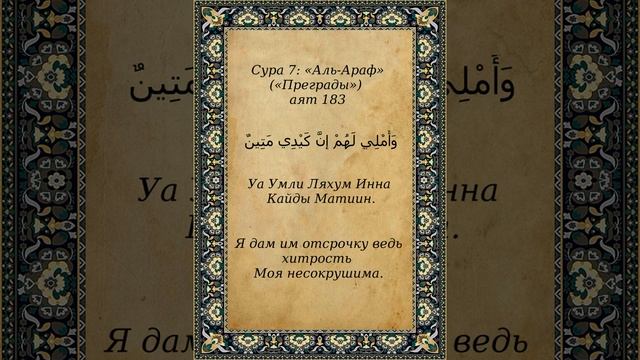 Сура 7: «Аль-Араф»
(«Преграды»)
аят 183
وَأُمْلِي لَهُمْ إِنَّ كَيْدِي مَتِينٌ
Уа Умли Ляхум Инна
Кайды Матиин.
Я дам им отсрочку ведь
хитрость
Моя несокрушима.